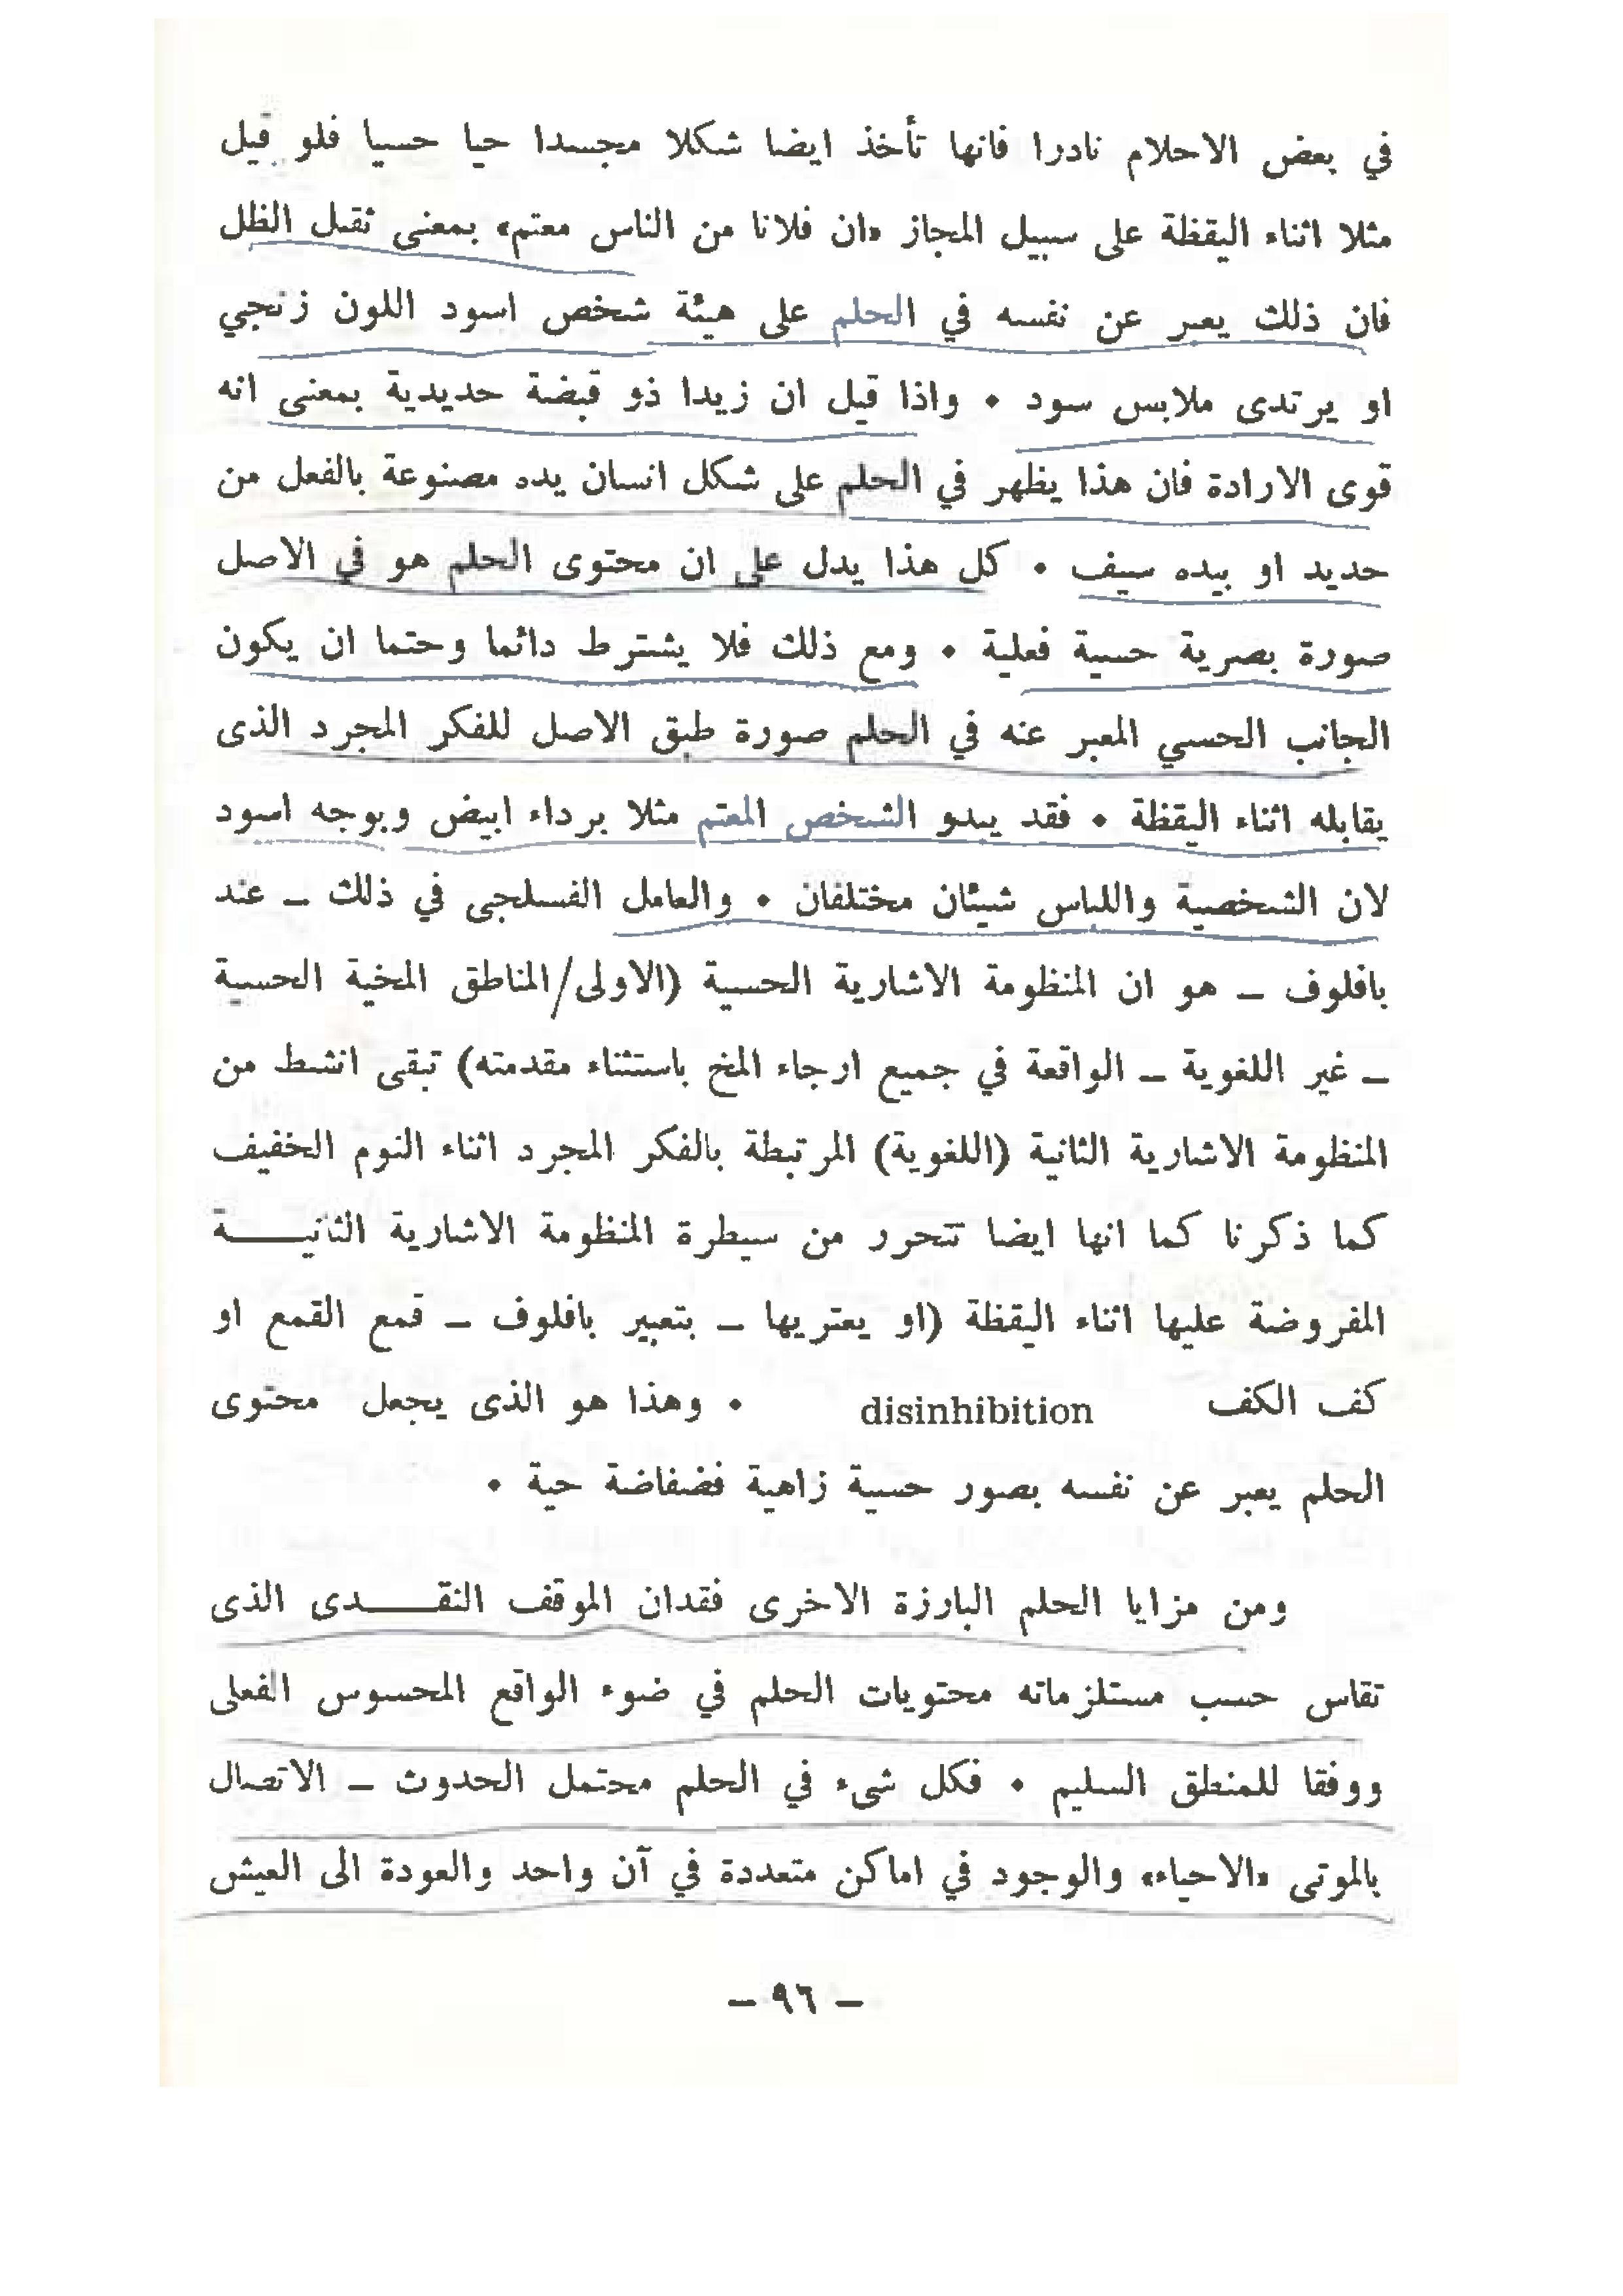 في بعض الاحلام نادرا فانها تأخذ ايضا شكلا مجسدا حيا حسيا فلو قيل
مثلا اثناء اليقظة على سبيل المجاز «ان فلانا من الناس معتم» بمعنى ثقيل الظل
فان ذلك يعبر عن نفسه في الحلم على هيئة شخص اسود اللون زنجي
او يرتدى ملابس سود • واذا قيل ان زيدا ذو قبضة حديدية بمعنى انه
قوى الارادة فان هذا يظهر في الحلم على شكل انسان يده مصنوعة بالفعل من
حديد او بيده سيف • كل هذا يدل على ان محتوى الحلم هو في الاصل
صورة بصرية حسية فعلية • ومع ذلك فلا يشترط دائما وحتما ان يكون
الجانب الحسي المعبر عنه في الحلم صورة طبق الاصل للفكر المجرد الذى
يقابله اثناء اليقظة • فقد يبدو الشخص المعتم مثلا برداء ابيض وبوجه اسود
لان الشخصية واللباس شيئان مختلفان • والعامل الفسلجى في ذلك ـ عند
بافلوف ـ هو ان المنظومة الاشارية الحسية (الاولى/المناطق المخية الحسية
ـ غير اللغوية ـ الواقعة في جميع ارجاء المخ باستثناء مقدمته) تبقى انشط من
المنظومة الاشارية الثانية (اللغوية) المرتبطة بالفكر المجرد اثناء النوم الخفيف
كما ذكرنا كما انها ايضا تتحرر من سيطرة المنظومة الاشارية الثانيـــة
المفروضة عليها اثناء اليقظة (او يعتريها ـ بتعبير بافلوف ـ قمع القمع او
كف الكف disinhibition • وهذا هو الذى يجعل محتوى
الحلم يعبر عن نفسه بصور حسية زاهية فضفاضة حية •
ومن مزايا الحلم البارزة الاخرى فقدان الموقف النقـــدى الذى
تقاس حسب مستلزماته محتويات الحلم في ضوء الواقع المحسوس الفعلى
ووفقا للمنطق السليم • فكل شىء في الحلم محتمل الحدوث ـ الاتصال
بالموتى «الاحياء» والوجود في اماكن متعددة في آن واحد والعودة الى العيش
ـ ٩٦ ـ